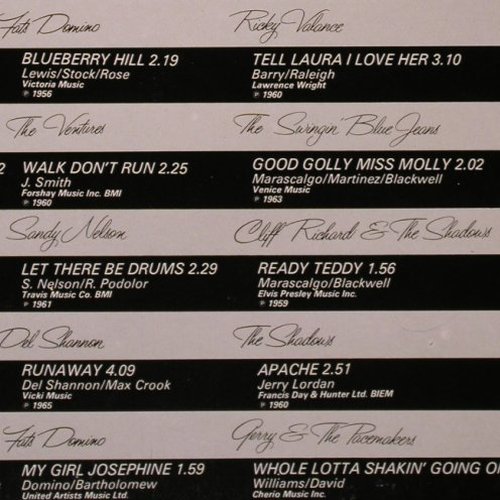 Fats Domino
BLUEBERRY HILL 2.19
Lewis/Stock/Rose
Victoria Music
℗ 1956
The Ventures
WALK DON'T RUN 2.25
J. Smith
Forshay Music Inc. BMI
℗ 1960
Sandy Nelson
LET THERE BE DRUMS 2.29
S. Nelson/R. Podolor
Travis Music Co. BMI
℗ 1961
Del Shannon
RUNAWAY 4.09
Del Shannon/Max Crook
Vicki Music
℗ 1965
Fats Domino
MY GIRL JOSEPHINE 1.59
Domino/Bartholomew
United Artists Music Ltd.
Ricky Valance
TELL LAURA I LOVE HER 3.10
Barry/Raleigh
Lawrence Wright
℗ 1960
The Swingin' Blue Jeans
GOOD GOLLY MISS MOLLY 2.02
Marascalgo/Martinez/Blackwell
Venice Music
℗ 1963
Cliff Richard & The Shadows
READY TEDDY 1.56
Marascalgo/Blackwell
Elvis Presley Music Inc.
℗ 1959
The Shadows
APACHE 2.51
Jerry Lordan
Francis Day & Hunter Ltd. BIEM
℗ 1960
Gerry & The Pacemakers
WHOLE LOTTA SHAKIN' GOING O
Williams/David
Cherio Music Inc.